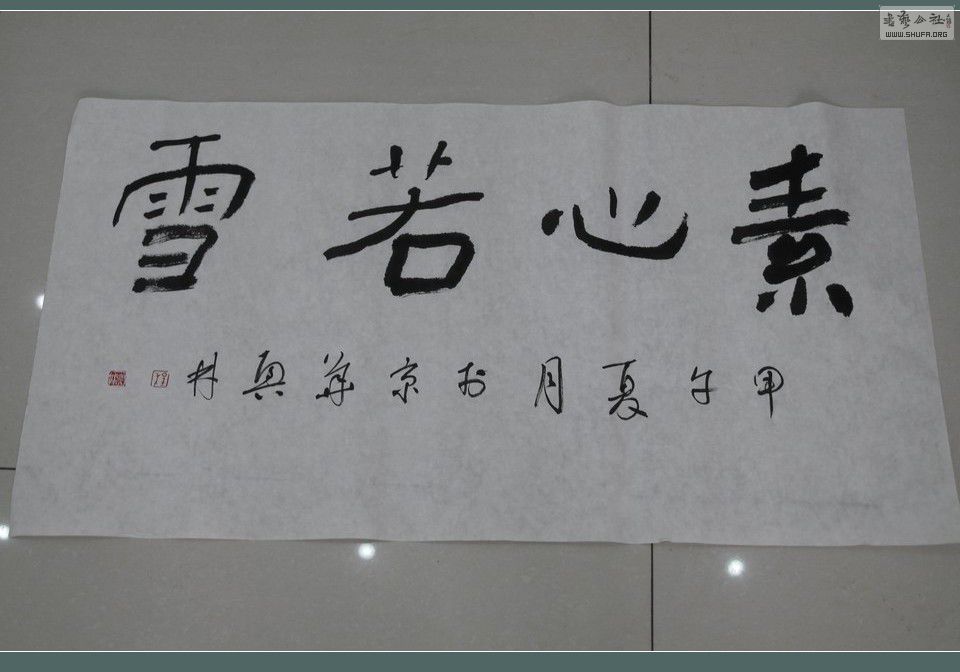 素心若雪
甲午夏月於京華興林
書藝公社
WWW.SHUFA.ORG